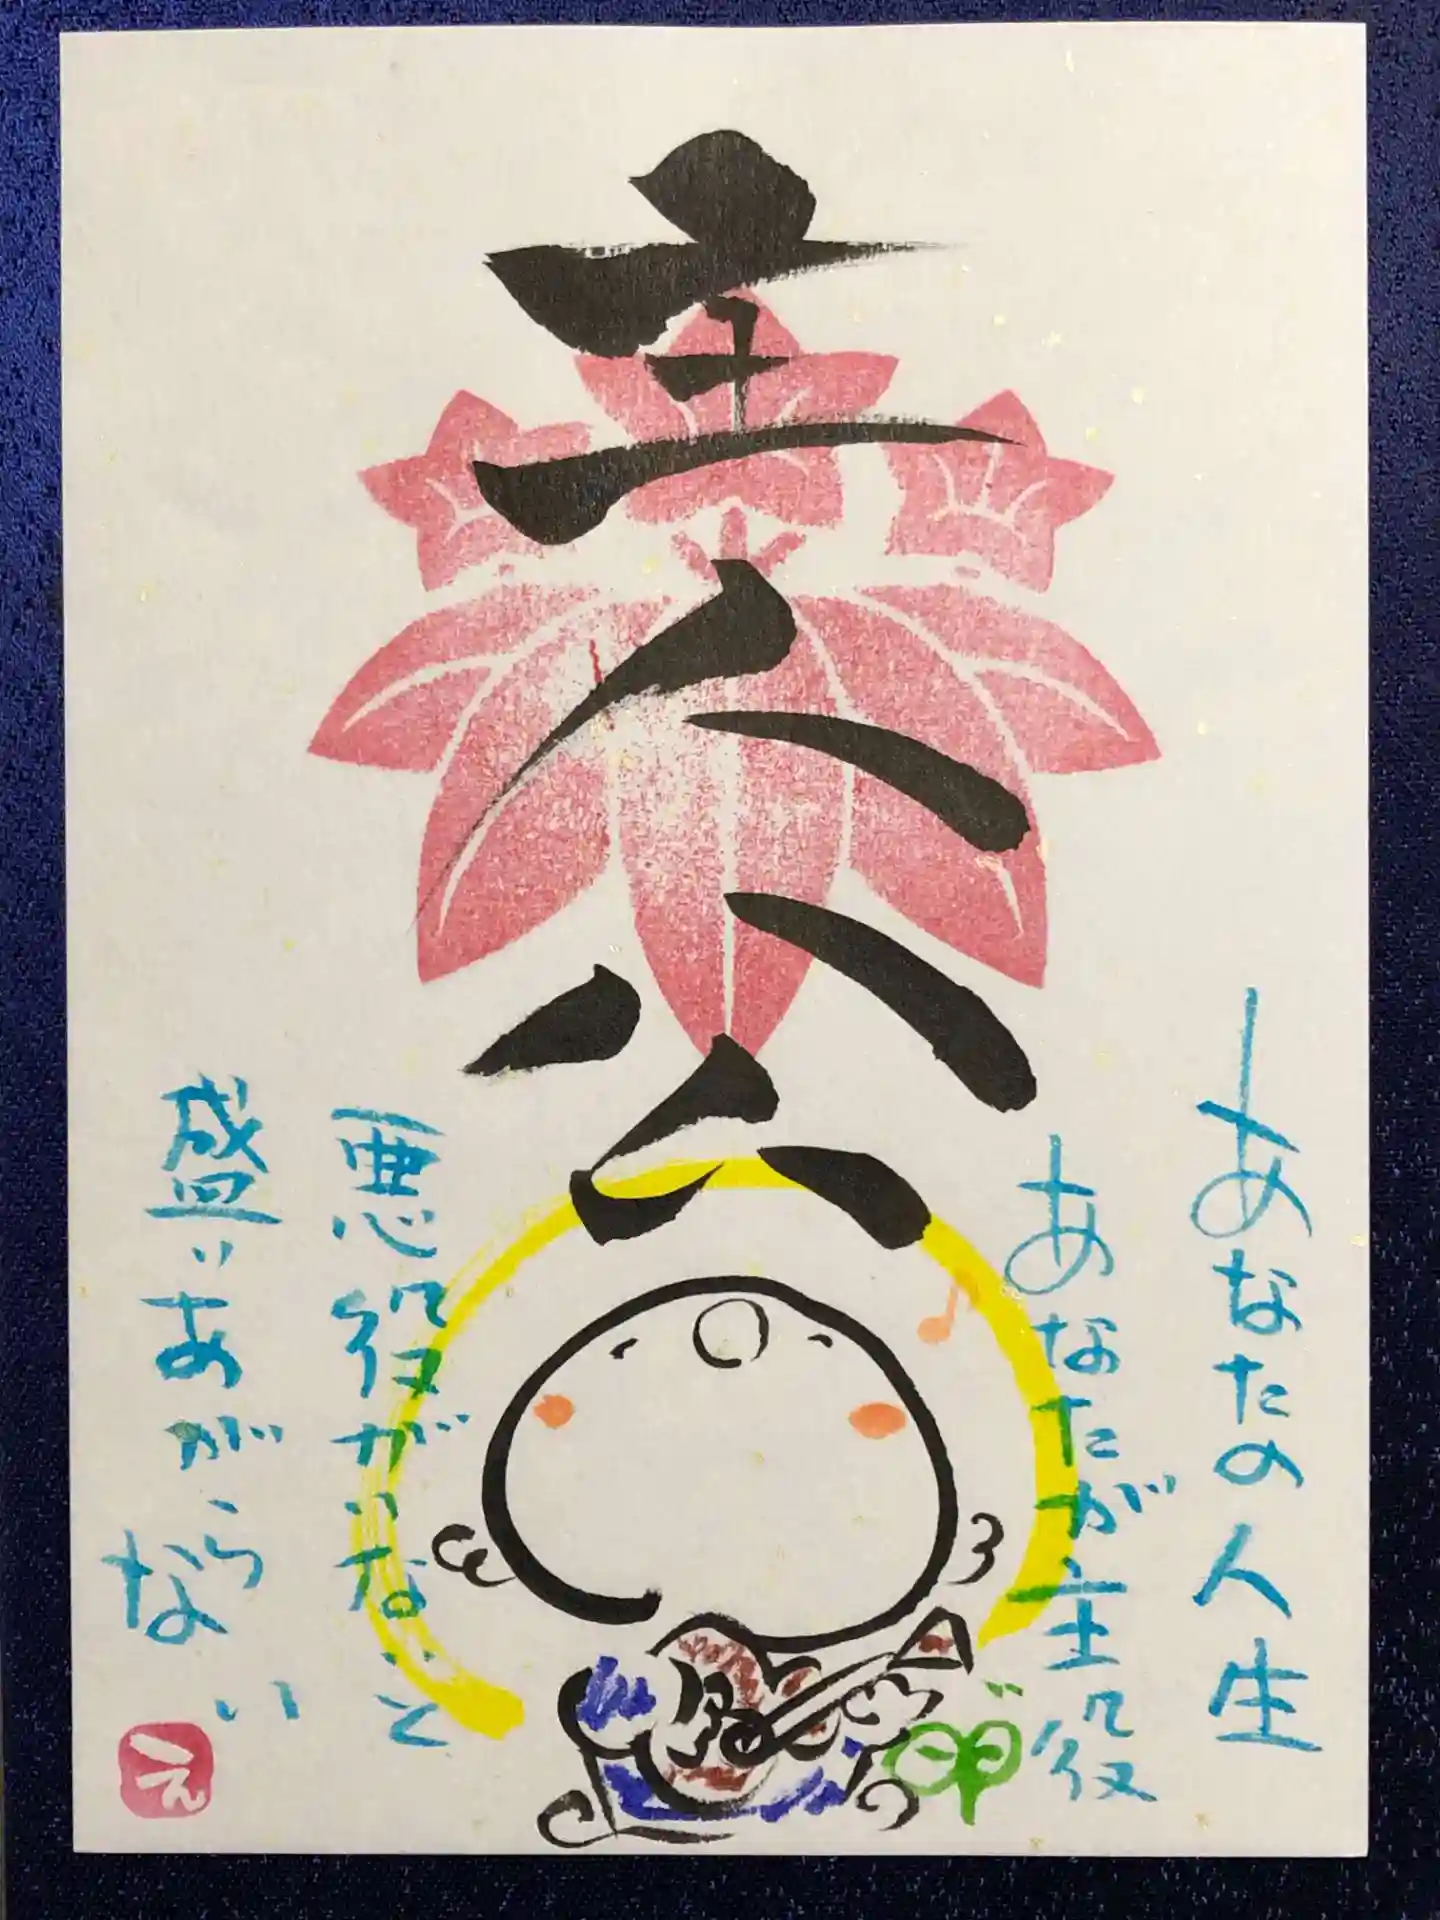 主人公
あなたの人生
あなたが主役
悪役がいないと
盛りあがらない
え